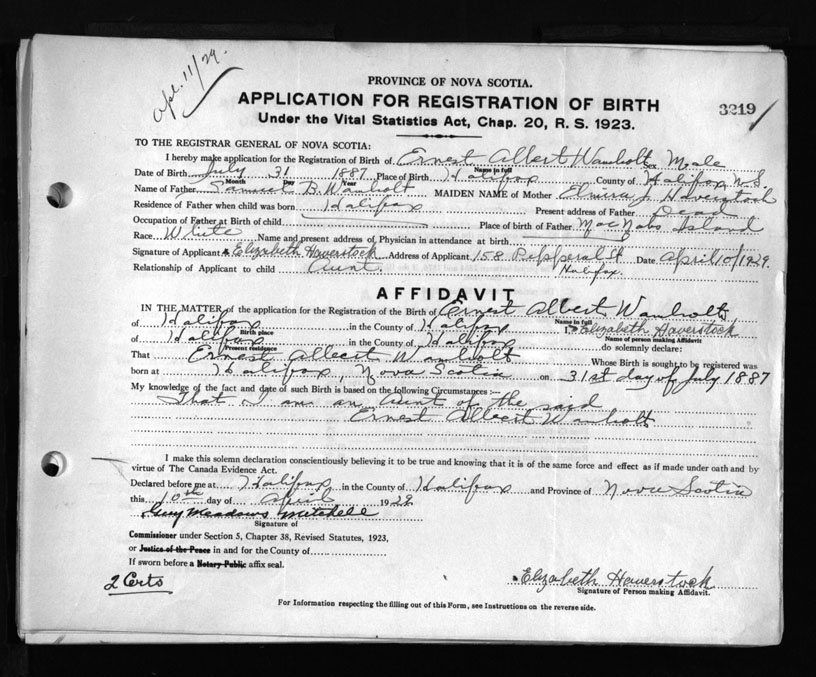 Apl. 11/29.
PROVINCE OF NOVA SCOTIA.
APPLICATION FOR REGISTRATION OF BIRTH
3219
Under the Vital Statistics Act, Chap. 20, R. S. 1923.
TO THE REGISTRAR GENERAL OF NOVA SCOTIA:
I hereby make application for the Registration of Birth of Ernest Albert Wambolt Sex Male
Name in full
Date of Birth July 31 1887 Place of Birth Halifax County of Halifax N.S.
Month Day Year
Name of Father Samuel B. Wambolt MAIDEN NAME of Mother Elmira J Haverstock
Residence of Father when child was born Halifax Present address of Father Dead
Occupation of Father at Birth of child Place of birth of Father MacNabs Island
Race White Name and present address of Physician in attendance at birth
Signature of Applicant Elizabeth Haverstock Address of Applicant 158 Pepperal St Halifax. Date April 10/1929.
Relationship of Applicant to child Aunt.
AFFIDAVIT
IN THE MATTER of the application for the Registration of the Birth of Ernest Albert Wambolt
Name in full
of Halifax in the County of Halifax I, Elizabeth Haverstock
Birth place Name of person making Affidavit
of Halifax in the County of Halifax do solemnly declare:
Present residence
That Ernest Albert Wambolt Whose Birth is sought to be registered was
born at Halifax, Nova Scotia on 31st day of July 1887
My knowledge of the fact and date of such Birth is based on the following Circumstances :—
That I am an Aunt of the said
Ernest Albert Wambolt
I make this solemn declaration conscientiously believing it to be true and knowing that it is of the same force and effect as if made under oath and by
virtue of The Canada Evidence Act.
Declared before me at Halifax in the County of Halifax and Province of Nova Scotia
this 10th day of April 1929
Guy Meadows Mitchell
Signature of
Commissioner under Section 5, Chapter 38, Revised Statutes, 1923,
or Justice of the Peace in and for the County of
If sworn before a Notary Public affix seal.
2 Certs
Elizabeth Haverstock
Signature of Person making Affidavit.
For Information respecting the filling out of this Form, see Instructions on the reverse side.